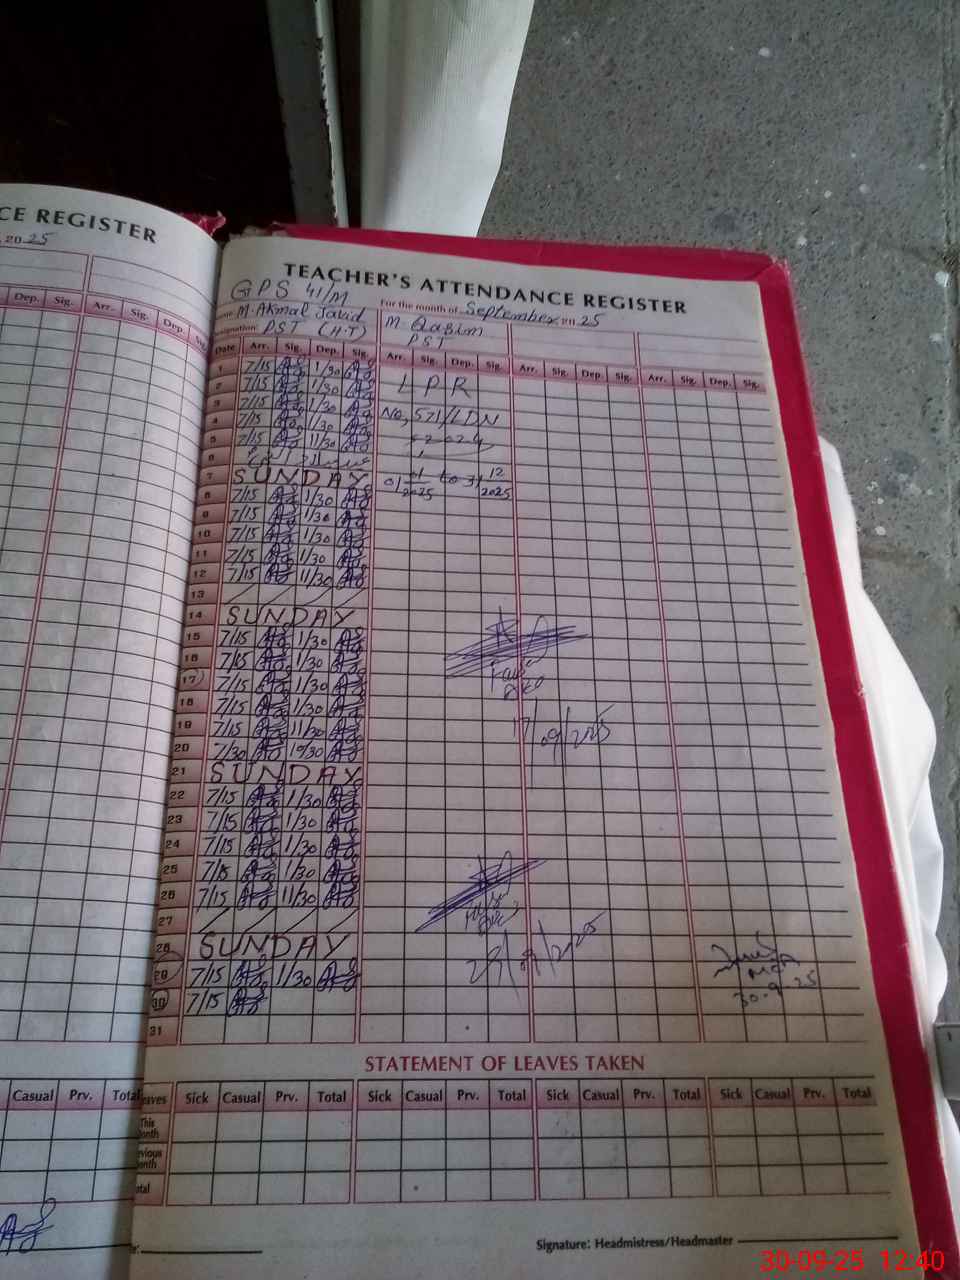 CE REGISTER
, 20 25
Dep. Sig. Arr. Sig. Dep. Sig.
TEACHER'S ATTENDANCE REGISTER
GPS 41/M
For the month of September 20 25
Name: M. Akmal Javid M. Qasim
Designation: PST (H.T) PST
Date Arr. Sig. Dep. Sig. Arr. Sig. Dep. Sig. Arr. Sig. Dep. Sig. Arr. Sig. Dep. Sig.
1 7/15 1/30
2 7/15 1/30 L P R
3 7/15 1/30
4 7/15 1/30 No, 571/LDN
5 7/15 11/30
6
7 SUNDAY 01/01/2025 to 31/12/2025
8 7/15 1/30
9 7/15 1/30
10 7/15 1/30
11 7/15 1/30
12 7/15 11/30
13
14 SUNDAY
15 7/15 1/30
16 7/15 1/30
17 7/15 1/30
18 7/15 1/30
19 7/15 11/30 17/09/2025
20 7/30 10/30
21 SUNDAY
22 7/15 1/30
23 7/15 1/30
24 7/15 1/30
25 7/15 1/30
26 7/15 11/30
27
28 SUNDAY
29 7/15 1/30
30 7/15 30-9-25
31
STATEMENT OF LEAVES TAKEN
Casual Prv. Total
Leaves Sick Casual Prv. Total Sick Casual Prv. Total Sick Casual Prv. Total Sick Casual Prv. Total
This Month
Previous Month
Total
Signature: Headmistress/Headmaster
30-09-25 12:40